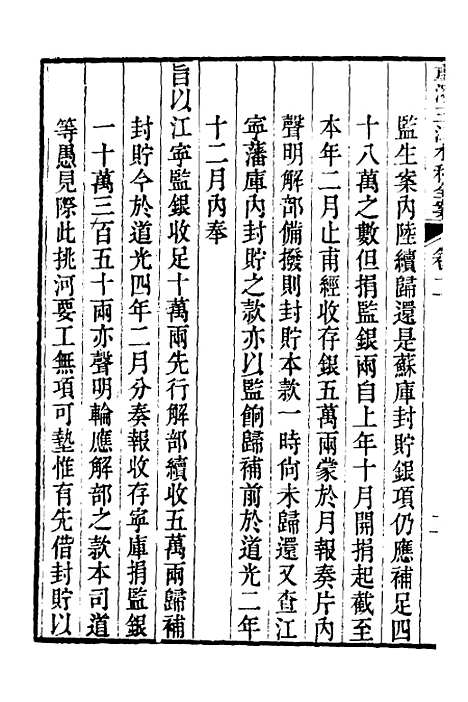 監生案內陸續歸還是蘇庫封貯銀項仍應補足四
十八萬之數但捐監銀兩自上年十月開捐起截至
本年二月止甫經收存銀五萬兩蒙於月報奏片內
聲明解部備撥則封貯本款一時尙未歸還又查江
寧藩庫內封貯之款亦以監餉歸補前於道光二年
十二月內奉
旨以江寧監銀收足十萬兩先行解部續收五萬兩歸補
封貯今於道光四年二月分奏報收存寧庫捐監銀
一十萬三百五十兩亦聲明輪應解部之款本司道
等愚見際此挑河要工無項可墊惟有先借封貯以